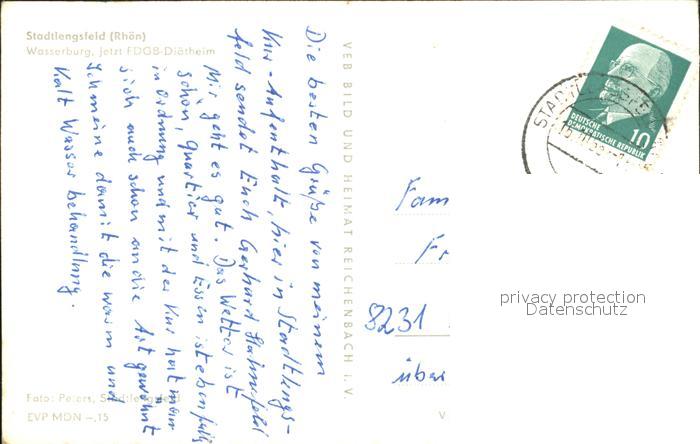 Stadtlengsfeld (Rhön)
Wasserburg, jetzt FDGB-Diätheim
Die besten Grüße von meinem
Kur-Aufenthalt, hier in Stadtlengs-
feld sendet Euch Gerhard
Mir geht es gut. Das Wetter ist
schön, Quartier und Essen ist ebenfalls
in Ordnung und mit der Kur hat man
sich auch schon an die Art gewöhnt
Ich meine damit die warm und
Kalt Wasser behandlung.
Foto: Peters, Stadtlengsfeld
EVP MDN -,15
VEB BILD UND HEIMAT REICHENBACH I. V.
V
DEUTSCHE
DEMOKRATISCHE REPUBLIK
10
Fam
Fr
8231
über
privacy protection
Datenschutz